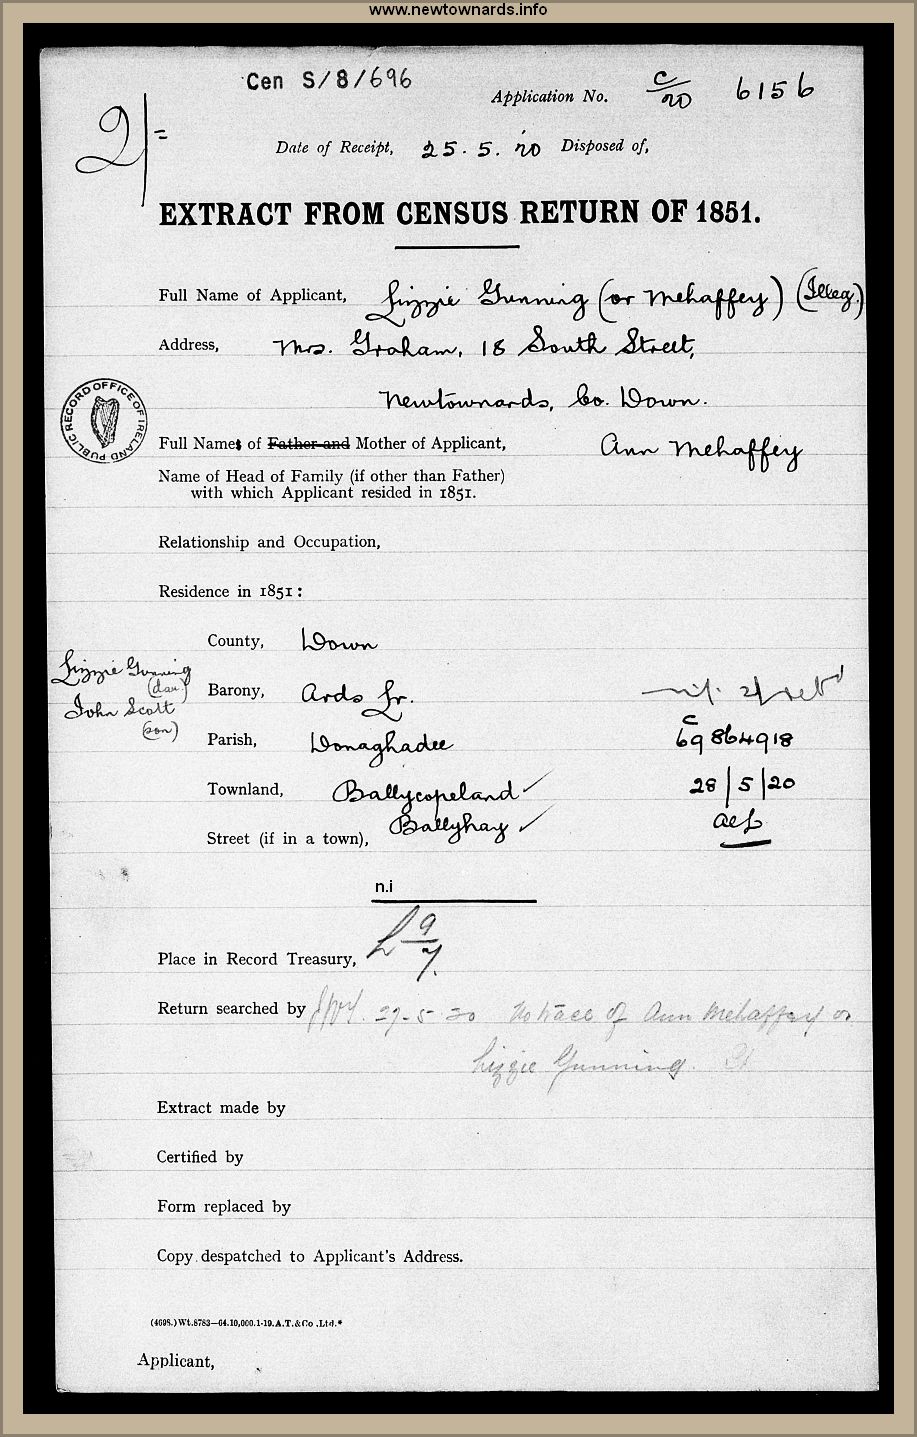 www.newtownards.info
Cen S/8/696
Application No. C/20 6156
2/=
Date of Receipt, 25.5.20 Disposed of,
EXTRACT FROM CENSUS RETURN OF 1851.
Full Name of Applicant, Lizzie Gunning (or Mehaffey) (Illeg.)
Address, Mrs. Graham, 18 South Street,
Newtownards, Co. Down.
PUBLIC RECORD OFFICE OF IRELAND
Full Names of Father and Mother of Applicant, Ann Mehaffey
Name of Head of Family (if other than Father)
with which Applicant resided in 1851.
Relationship and Occupation,
Residence in 1851:
County, Down
Lizzie Gunning
(dau.)
John Scott
(son)
Barony, Ards Lr.
Parish, Donaghadee
69864918
Townland, Ballycopeland
28/5/20
Street (if in a town), Ballyhay
n.i
Place in Record Treasury, L 9/7.
Return searched by 27-5-20 No trace of Ann Mehaffey or
Lizzie Gunning.
Extract made by
Certified by
Form replaced by
Copy despatched to Applicant's Address.
(4698.)Wt.8783—64.10,000.1-19.A.T.&Co.,Ltd.*
Applicant,